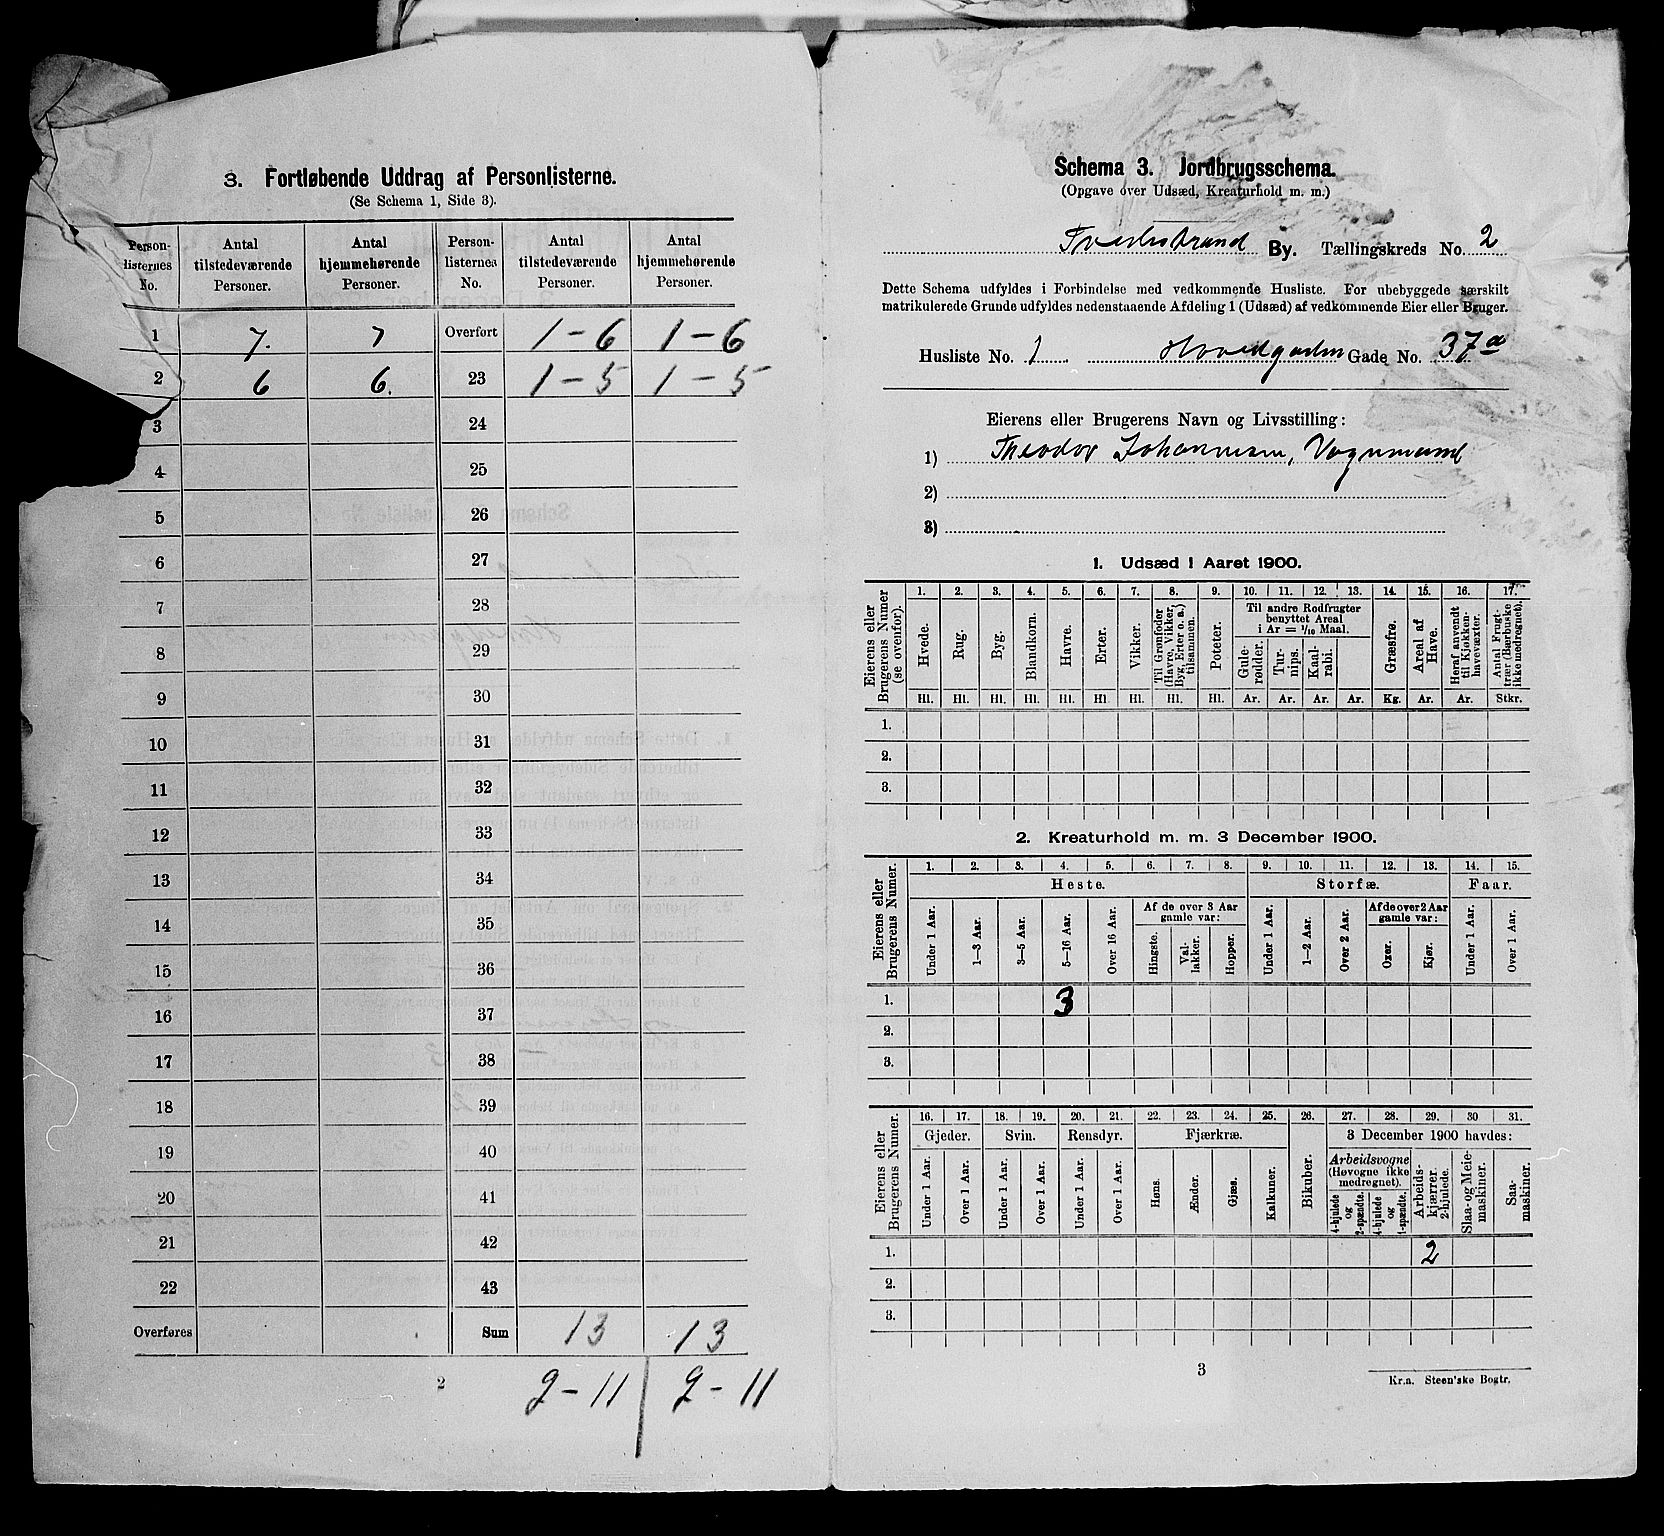 3. Fortløbende Uddrag af Personlisterne.
(Se Schema 1, Side 3).
Person-listernes No. | Antal tilstedeværende Personer. | Antal hjemmehørende Personer. | Person-listernes No. | Antal tilstedeværende Personer. | Antal hjemmehørende Personer.
1 | 7. | 7 | Overfort | 1-6 | 1-6
2 | 6 | 6. | 23 | 1-5 | 1-5
3 | | | 24
4 | | | 25
5 | | | 26
6 | | | 27
7 | | | 28
8 | | | 29
9 | | | 30
10 | | | 31
11 | | | 32
12 | | | 33
13 | | | 34
14 | | | 35
15 | | | 36
16 | | | 37
17 | | | 38
18 | | | 39
19 | | | 40
20 | | | 41
21 | | | 42
22 | | | 43
Overføres | | | Sum | 13 | 13
2
2-11 | 2-11
Schema 3. Jordbrugsschema.
(Opgave over Udsæd, Kreaturhold m. m.)
Tvedestrand By. Tællingskreds No. 2
Dette Schema udfyldes i Forbindelse med vedkommende Husliste. For ubebyggede særskilt
matrikulerede Grunde udfyldes nedenstaaende Afdeling 1 (Udsæd) af vedkommende Eier eller Bruger.
Husliste No. 1 Hovedgaden Gade No. 37a
Eierens eller Brugerens Navn og Livsstilling:
1) Theodor Johannesen, Vognmand
2)
3)
1. Udsæd i Aaret 1900.
Eierens eller Brugerens Numer (se ovenfor).
1. 2. 3. 4. 5. 6. 7. 8. 9. 10. 11. 12. 13. 14. 15. 16. 17.
Hvede. Rug. Byg. Blandkorn. Havre. Erter. Vikker. Til Grønfoder (Havre, Vikker, Byg, Erter o. a.) tilsammen. Poteter.
Til andre Rodfrugter benyttet Areal i Ar = 1/10 Maal.
Gule-rødder. Tur-nips. Kaal-rabi. Græsfrø. Areal af Have. Heraf anvendt til Kjøkken-havevæxter. Antal Frugt-trær (Bærbuske ikke medregnet).
Hl. Hl. Hl. Hl. Hl. Hl. Hl. Hl. Hl. Ar. Ar. Ar. Ar. Kg. Ar. Ar. Stkr.
1.
2.
3.
2. Kreaturhold m. m. 3 December 1900.
Eierens eller Brugerens Numer.
1. 2. 3. 4. 5. 6. 7. 8. 9. 10. 11. 12. 13. 14. 15.
Heste. Storfæ. Faar.
Af de over 3 Aar gamle var: Af de over 2 Aar gamle var:
Under 1 Aar. 1–3 Aar. 3–5 Aar. 5–16 Aar. Over 16 Aar. Hingste. Val-lakker. Hopper. Under 1 Aar. 1–2 Aar. Over 2 Aar. Oxer. Kjør. Under 1 Aar. Over 1 Aar.
1. 3
2.
3.
Eierens eller Brugerens Numer.
16. 17. 18. 19. 20. 21. 22. 23. 24. 25. 26. 27. 28. 29. 30 31.
Gjeder. Svin. Rensdyr. Fjærkræ. 3 December 1900 havdes:
Arbeidsvogne (Høvogne ikke medregnet).
Under 1 Aar. Over 1 Aar. Under 1 Aar. Over 1 Aar. Under 1 Aar. Over 1 Aar. Høns. Ænder. Gjæs. Kalkuner. Bikuber. 4-hjulede og 2-spændte. 4-hjulede og 1-spændte. Arbeids-kjærrer 2-hjulede. Slaa- og Meie-maskiner. Saa-maskiner.
1. 2
2.
3.
3
Kr.a. Steen'ske Bogtr.